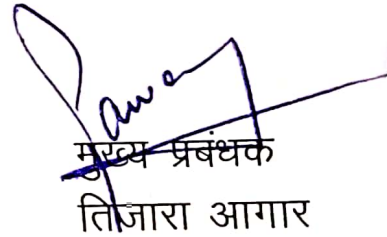 मुख्य प्रबंधक
तिजारा आगार